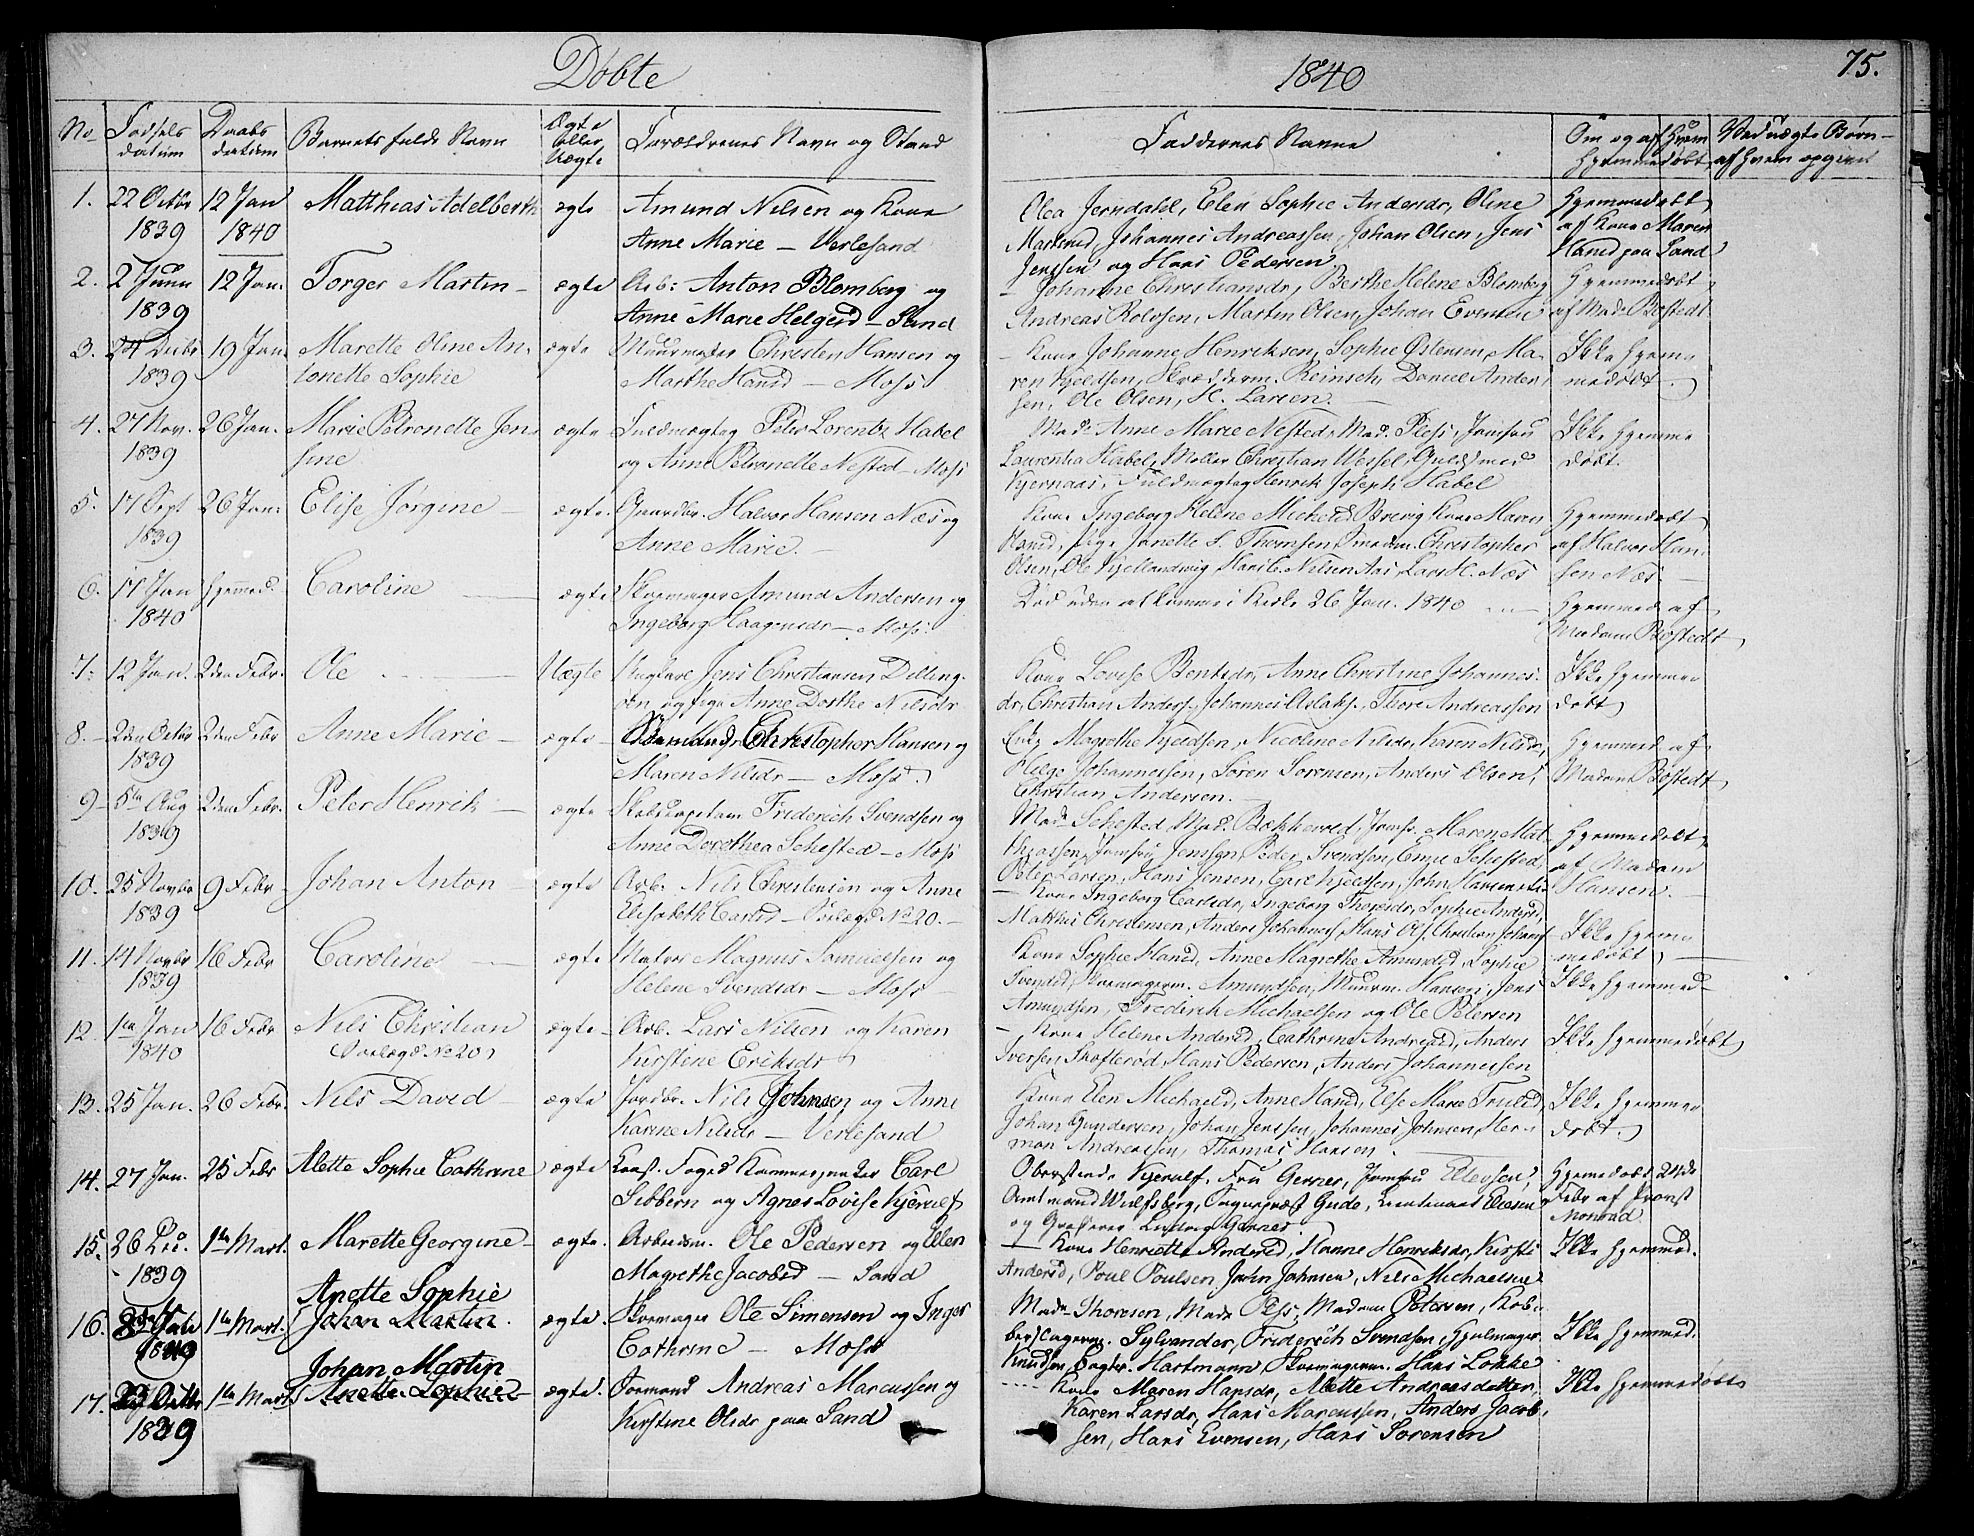 Døbte
1840
75.
No Fødsels datum Daabs datum Barnets fulde Navn Ægte eller Uægte Forældrenes Navn og Stand Faddernes Navne Om og af Hvem Hjemmedøbt Ved uægte Børn af Hvem opgivet
1. 22 Octbr 12 Jan Matthias Adelberth ægte Amund Nilsen og Kone
1839 1840 Anne Marie — Verlesand
Olea Jerndahl, Elen Sophie Andersdr, Oline
Johannes Andreassen, Johan Olsen, Jens
Jenssen og Hans Pedersen
Hjemmedøbt
af Kone Maren
Hansd paa Sand
2. 2 Juni 12 Jan. Torger Martin — ægte Arb: Anton Blomberg og
1839 Anne Marie Helgesd — Sand
— Johanne Christiansdr, Berthe Helene Blomberg
Andreas Rolvsen, Martin Olsen, Johan Evensen
Hjemmedøbt
af Mad. Bostedt
3. 24 Decbr 19 Jan. Marette Oline An- ægte Muurmester Christen Hansen og
1839 tonette Sophie Marthe Hansd — Moss
— Kone Johanne Henriksen, Sophie Østensen, Ma-
ren Kjeldsen, Skrædderm. Reinsch, Daniel Ander-
sen, Ole Olsen, H. Larsen. —
Ikke hjemme
medøbt.
4. 27 Nov. 26 Jan. Marie Petronelle Jen- ægte Fuldmægtig Peter Lorentz Habel
1839 sine og Anne Petronelle Nested — Moss
Mad. Anne Marie Nested, Mad. Pless, Jomfru
Laurentia Habel, Møller Christian Wessel, Guldsmed
Kjernaas, Fuldmægtig Henrik Joseph Habel
Ikke hjemme
døbt.
5. 17 Sept 26 Jan. Elise Jørgine — ægte. Gaardbr. Halvor Hansen Næs og
1839 Anne Marie. —
Kone Ingeborg Helene Mickelsd. Brevig, Kone Maren
Hansd, pige Janette S. Thomsen, Christopher
Olsen, Ole Kjellandsvig, Hans C. Nilsen Aas, Lars H. Næs
Hjemmedøbt
af Halvor Han-
sen Næs. —
6. 17 Jan hjemmed. Caroline — ægte Skomager Amund Andersen og
1840 Ingeborg Haagensdr — Moss.
Død uden at komme i Kirke 26 Jan. 1840 —
Hjemmed. af
Madam Bostedt
7. 12 Jan. 2den Febr. Ole — Uægte Ungkarl Jens Christiansen Dilling-
en og pige Anne Dorthe Nilsdr
Kone Lovise Bentsdr, Anne Christine Johannes-
dr, Christian Anders., Johannes Aslaks., Thore Andreassen
Ikke hjemme
døbt
8. 2den Octbr 2den Febr Anne Marie — ægte — Christopher Hansen og
1839 Maren Nilsdr — Moss.
Magrethe Kjeldsen, Nicoline Nilsdr, Karen Nilsdr,
Helge Johannessen, Søren Sørensen, Anders Olsen,
Christian Andersen. —
Hjemmed. af
Madam Bostedt
9 — 5te Aug 2den Febr. Peter Henrik — ægte Skibscapitain Friderich Svendsen og
1839 Anne Dorothea Sehested — Moss
Mad. Sehested, Mad. Bækkevold, Jomf. Maren Mat-
thiassen, Jomfru Jenssen, Peder Svendsen, Emil Sehested,
Peter Larsen, Hans Jensen, Carl Kjeldsen, John Hansen
Hjemmedøbt
af Madam
Hansen.
10. 25 Novbr 9 Febr Johan Anton — ægte Arb. Nils Christensen og Anne
1839 Elisabeth Carlsd — No 20. —
— Kone Ingeborg Carlsdr, Ingeborg Thoresdr, Sophie Andersd,
Matthis Christensen, Anders Johannes., Hans Ols., Christian Johans
Ikke hjemme
medøbt. —
11. 14 Novbr 16 Febr Caroline — ægte Matros Magnus Samuelsen og
1839 Helene Svendsdr — Moss
Kone Sophie Hansd, Anne Magrethe Amundsd, Sophie
Svendsd, Skomagerm. Amundsen, Muurm. Hansen, Jens
Amundsen, Frederik Michaelsen og Ole Petersen
Ikke hjemmed —
12. 1te Jan 16 Febr. Nils Christian ægte — Arb. Lars Nilsen og Karen
1840 No 20. Kirstine Eriksdr
— Kone Helene Andersd, Cathrine Andreasd, Anders
Iversen Skofterød, Hans Pedersen, Anders Johannessen
Ikke hjemmedøbt
13. 25 Jan. 26 Febr. Nils David — ægte Jordbr. Nils Johnsen og Anne
Karine Nilsdr — Verlesand
Kone Elen Michaelsd, Anne Hansd, Else Marie Trulsd,
Johan Gundersen, Johan Jenssen, Johannes Johnsen, Her-
man Andreasen, Thomas Hansen.
Ikke hjemme
døbt.
14. 27 Jan. 25 Febr Alette Sophie Cathrine ægte Const. Foged Kammerjunker Carl
Sibbern og Agnes Lovise Kjerulf
Oberstinde Kjerulf, Fru Gerner, Jomfru Ellevsen,
Amtmand Wulfsberg, Sognepræst Gude, Lieutenant Ellevsen
og Graverer Ludvig Garnes
Hjemmedøbt 24de
Febr af Provst
Monrad
15. 26 Dec. 1te Mart. Marette Georgine — ægte. Arbeidsm. Ole Pedersen og Ellen
1839 Magrethe Jacobsd — Sand
— Kone Henriette Andersd, Hanne Henriksdr, Kirsti
Andersd, Poul Poulsen, John Johnsen, Nils Michaelsen
Ikke hjemmed.
Anette Sophie
16. 1te Mart. Johan Martin. ægte. Skomager Ole Simensen og Inger
Cathrine — Moss
Mad. Thoresen, Mad. Pless, Madam Petersen, Kob-
berslagerm. Sylvander, Friderich Svendsen, Hjulmager
Knudsen, Bagter. Hartmann, Skomagerm. Hans Løkke
Ikke hjemmed.
Johan Martin
17. 1te Mart Anette Sophie — ægte. Formand Andreas Marcussen og
1839 Kirstine Olsdr paa Sand
Kone Maren Hansdr, Alette Andreasdatter,
Karen Larsdr, Hans Marcussen, Anders Jacob-
sen, Hans Evensen, Hans Sørensen
Ikke hjemmedøbt